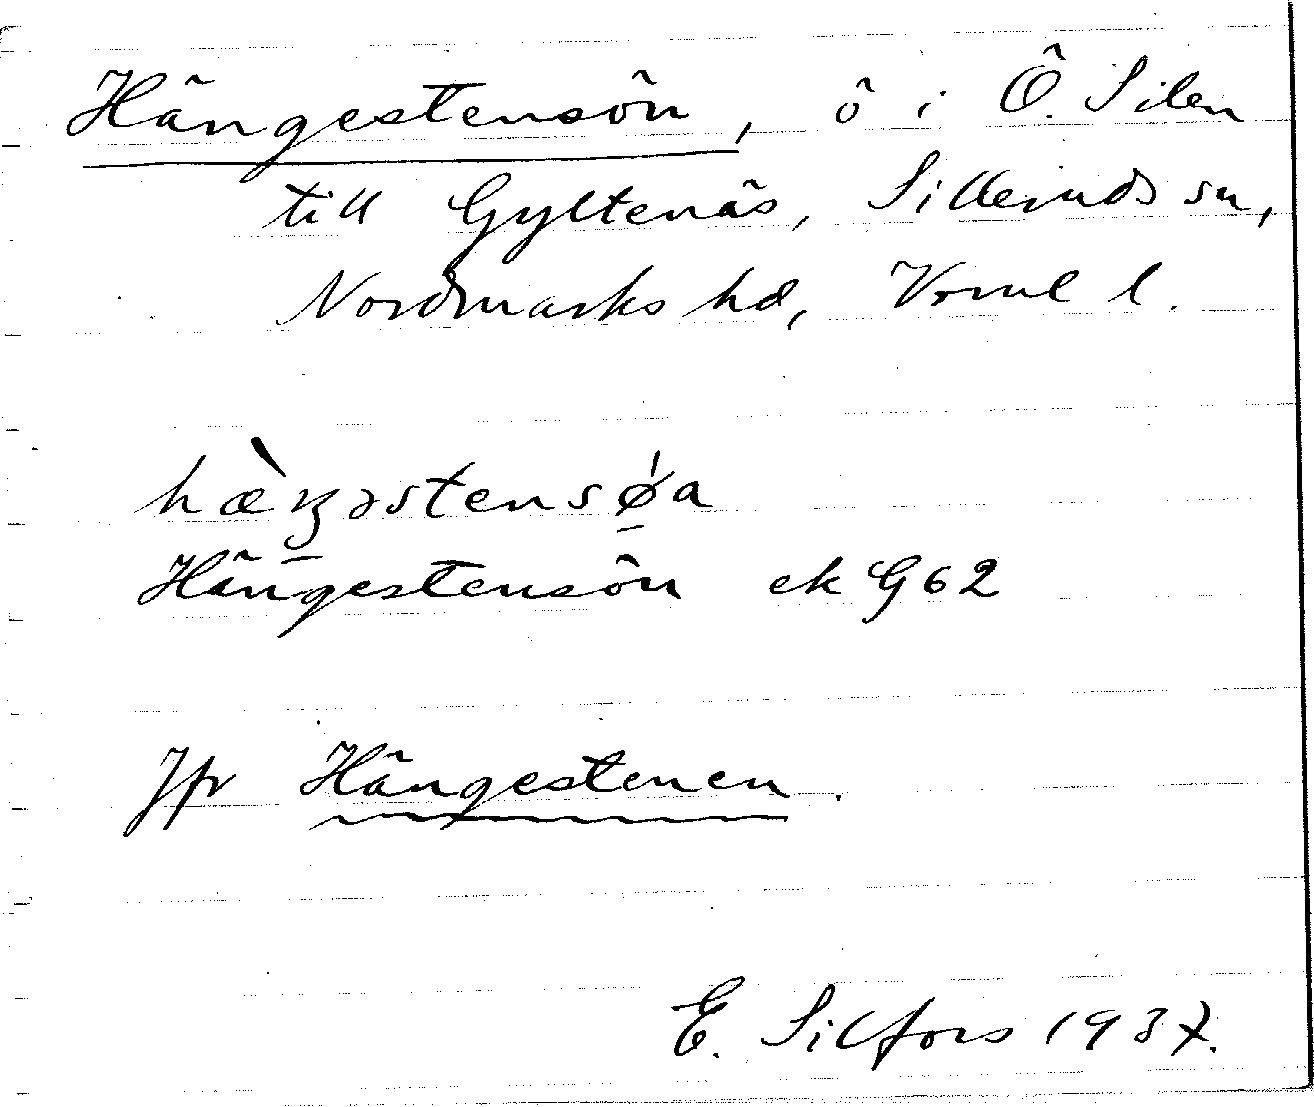 Hängestensön, ö i Ö. Silen
till Gyltenäs, Silleruds sn,
Nordmarks hd, Vrml l.
hæ̀ŋəstensǿa
Hängestensön ek G62
Jfr Hängestenen.
E. Silfors 1937.